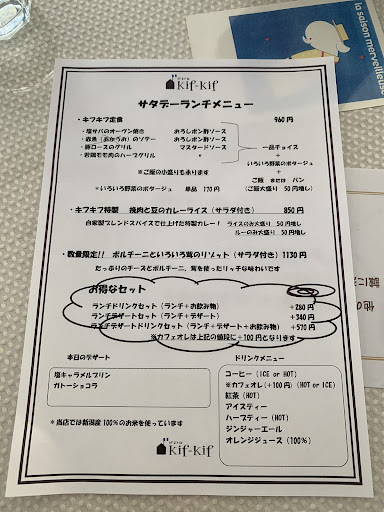 kif-kif
サタデーランチメニュー
・キフキフ定食 960円
・塩サバのオーヴン焼き おろしポン酢ソース
・赤魚(あかうお)のソテー おろしポン酢ソース
・豚ロースのグリル マスタードソース
・若鶏モモ肉のハーブグリル 〃
一品チョイス
+
いろいろ野菜のポタージュ
+
ご飯 または パン
(ご飯大盛り 50円増し)
※ご飯の小盛りも承ります
※いろいろ野菜のポタージュ 単品 170円
・キフキフ特製 挽肉と豆のカレーライス(サラダ付き) 850円
自家製ブレンドスパイスで仕上げた特製カレー! ライスのみ大盛り 50円増し
ルーのみ大盛り 50円増し
・数量限定!! ポルチーニといろいろ茸のリゾット(サラダ付き)1130円
たっぷりのチーズとポルチーニ、茸を使ったリッチな味わいです
お得なセット
ランチドリンクセット(ランチ+お飲み物) +260円
ランチデザートセット(ランチ+デザート) +340円
ランチデザートドリンクセット(ランチ+デザート+お飲み物) +570円
※カフェオレは上記の値段に+100円となります
本日のデザート
塩キャラメルプリン
ガトーショコラ
ドリンクメニュー
コーヒー(ICE or HOT)
※カフェオレ(+100円)(HOT or ICE)
紅茶(HOT)
アイスティー
ハーブティー(HOT)
ジンジャーエール
オレンジジュース(100%)
※当店では新潟産100%のお米を使っています
kif-kif
la saison merveilleuse